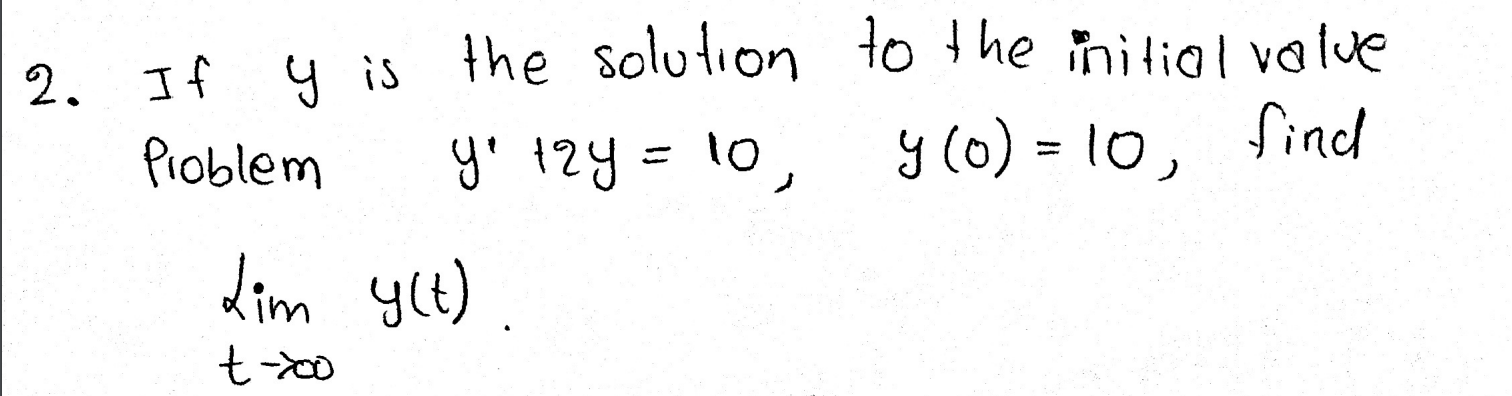 2. If y is the solution to the initial value
Problem y' +2y = 10, y(0) = 10, find
Lim y(t).
t→∞